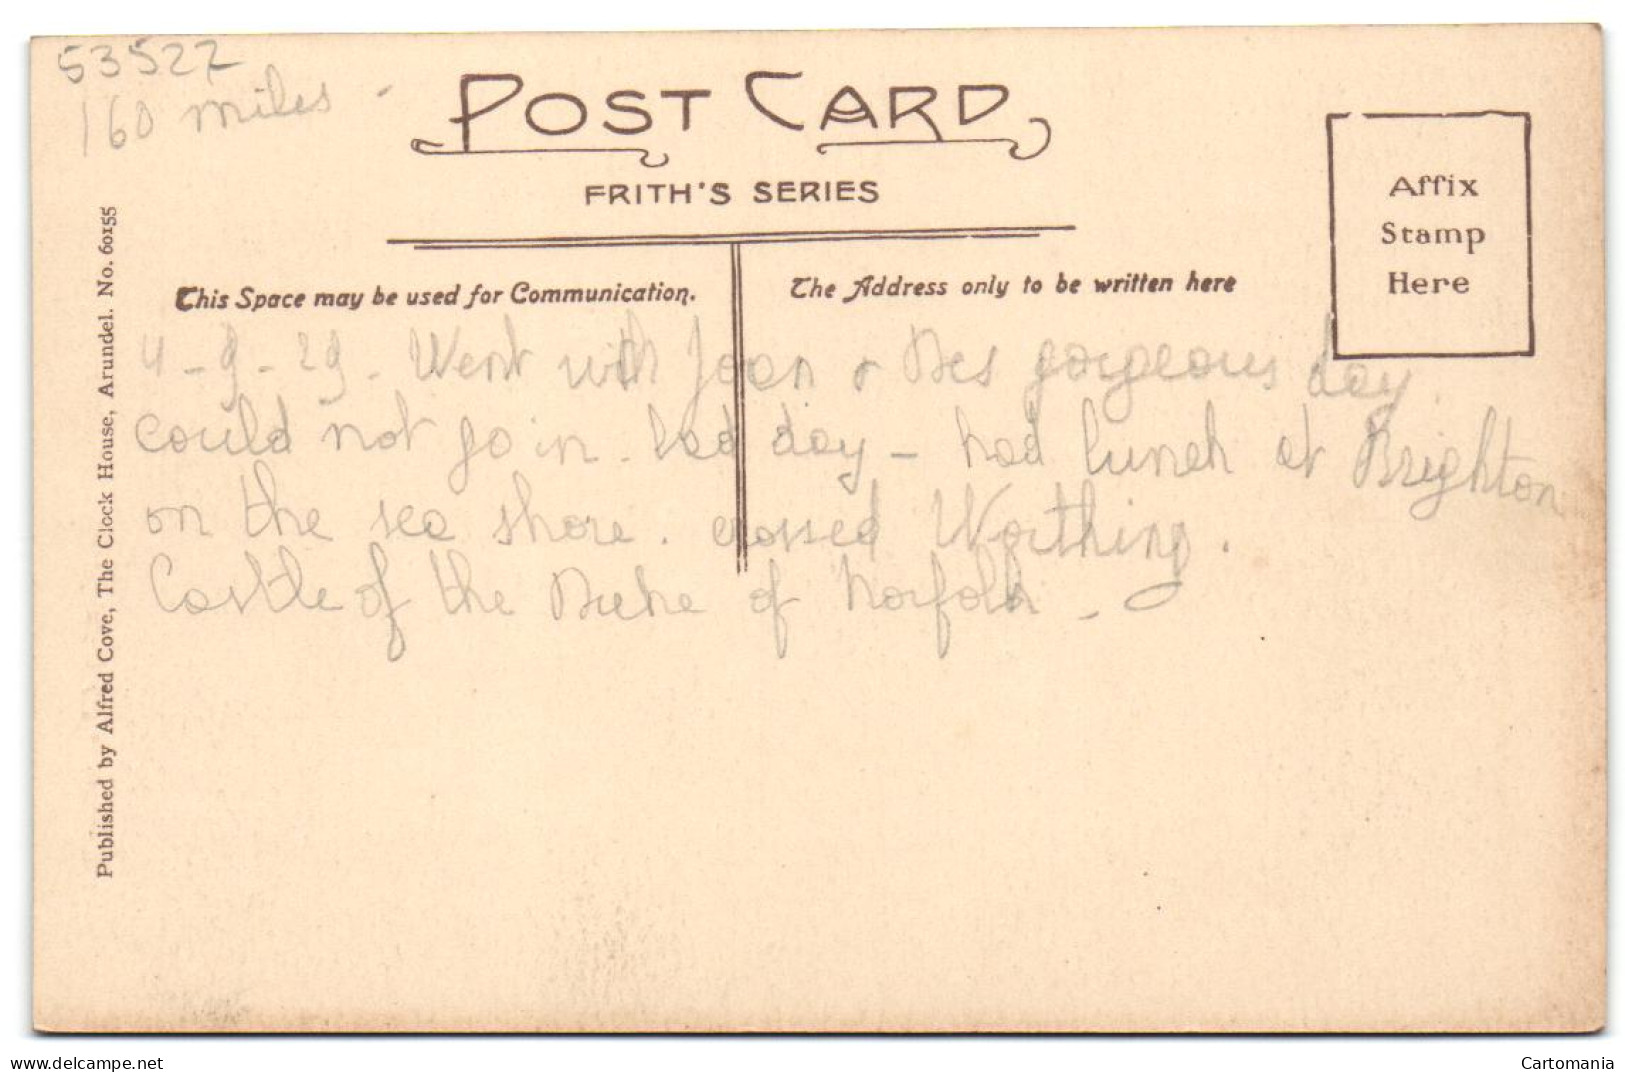 53522
160 miles -
POST CARD
FRITH'S SERIES
Affix
Stamp
Here
This Space may be used for Communication.
The Address only to be written here
4-9-29. Went with Joan & Des gorgeous day.
could not go in. bad day - had lunch at Brighton
on the sea shore. crossed Worthing.
Castle of the Duke of Norfolk -
Published by Alfred Cove, The Clock House, Arundel. No. 60155
delcampe.net
Cartomania